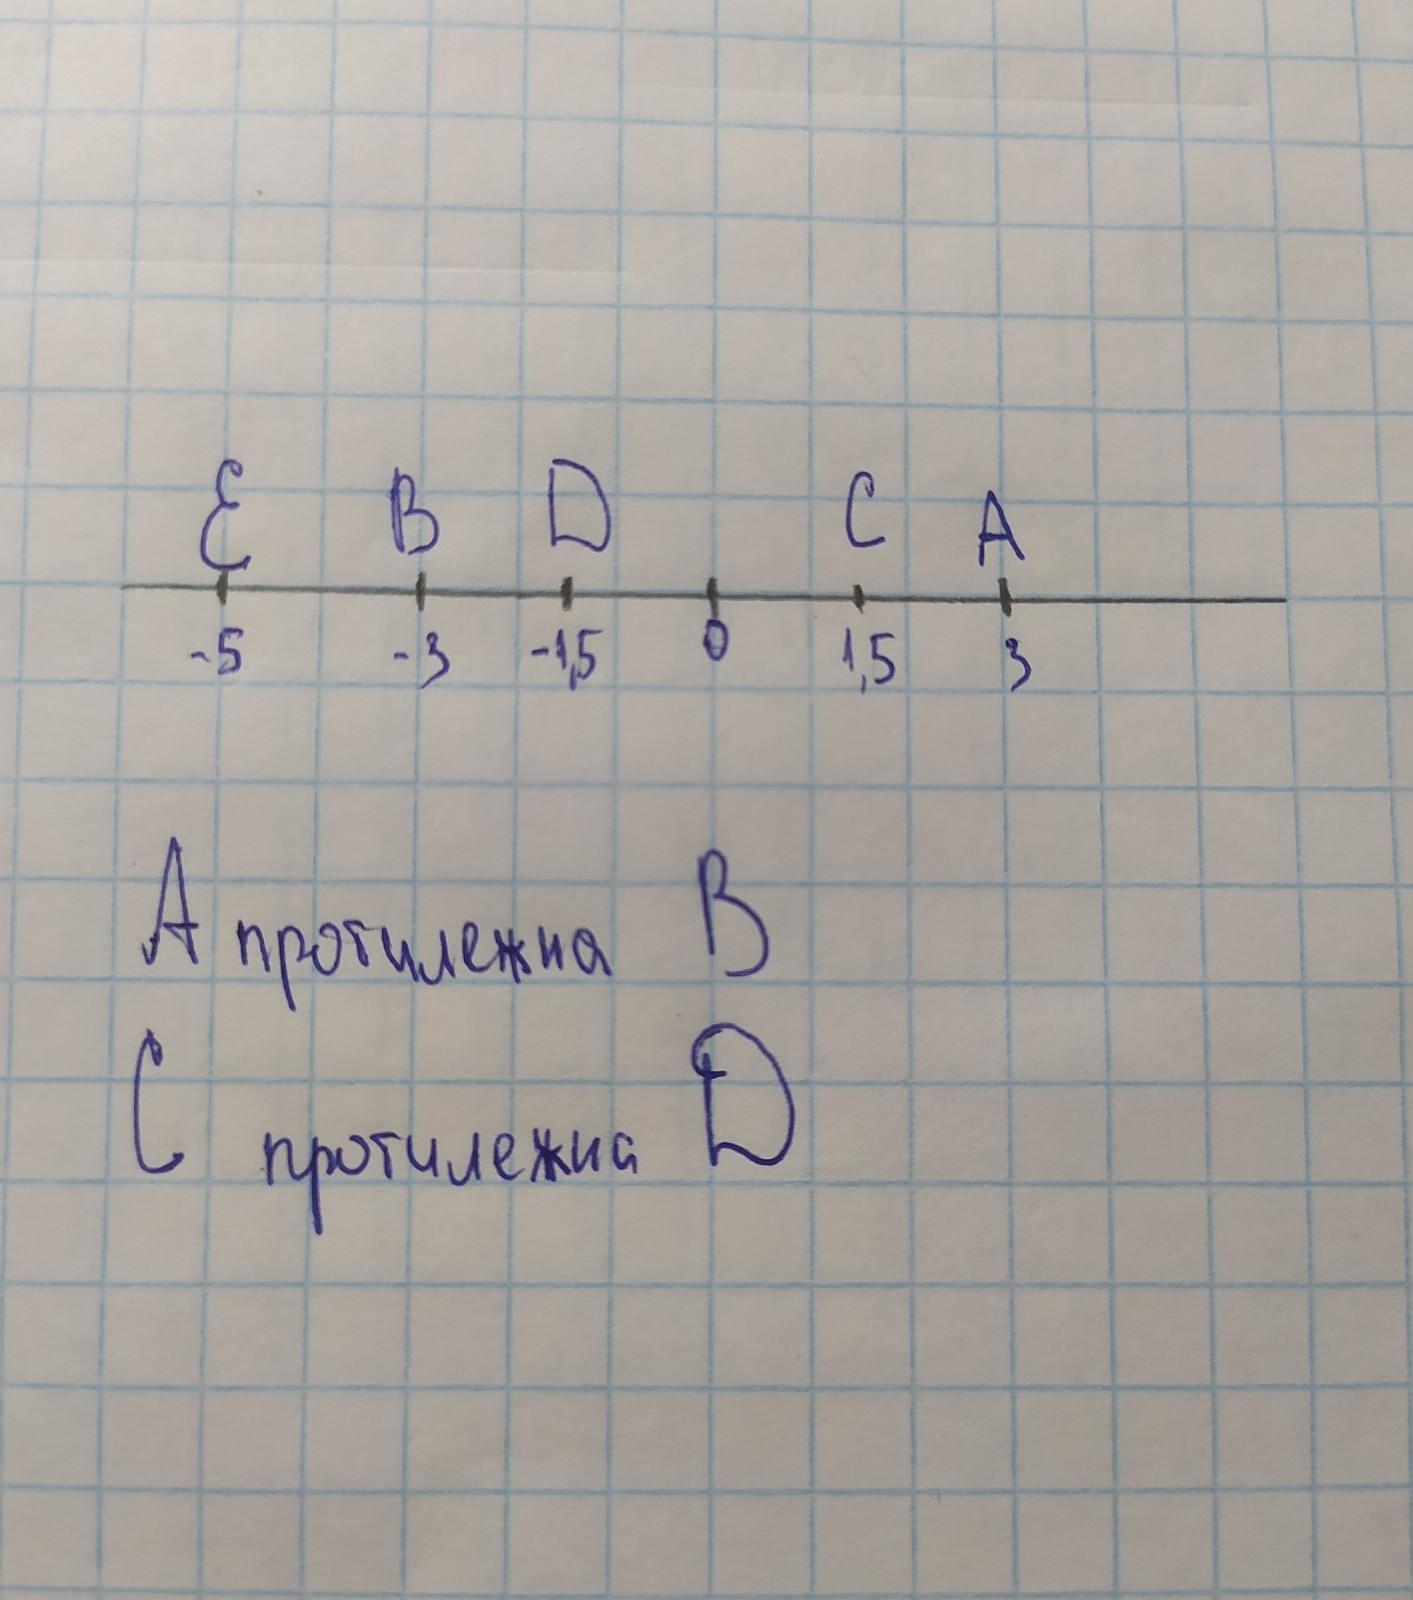 E B D C A
-5 -3 -1,5 0 1,5 3
A протилежна B
C протилежна D